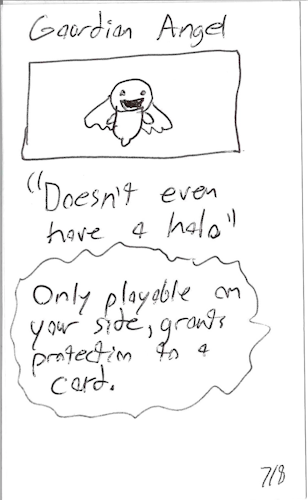 Gaurdian Angel
"Doesn't even
have a halo"
Only playable on
your side, grants
protection to a
card.
7/8